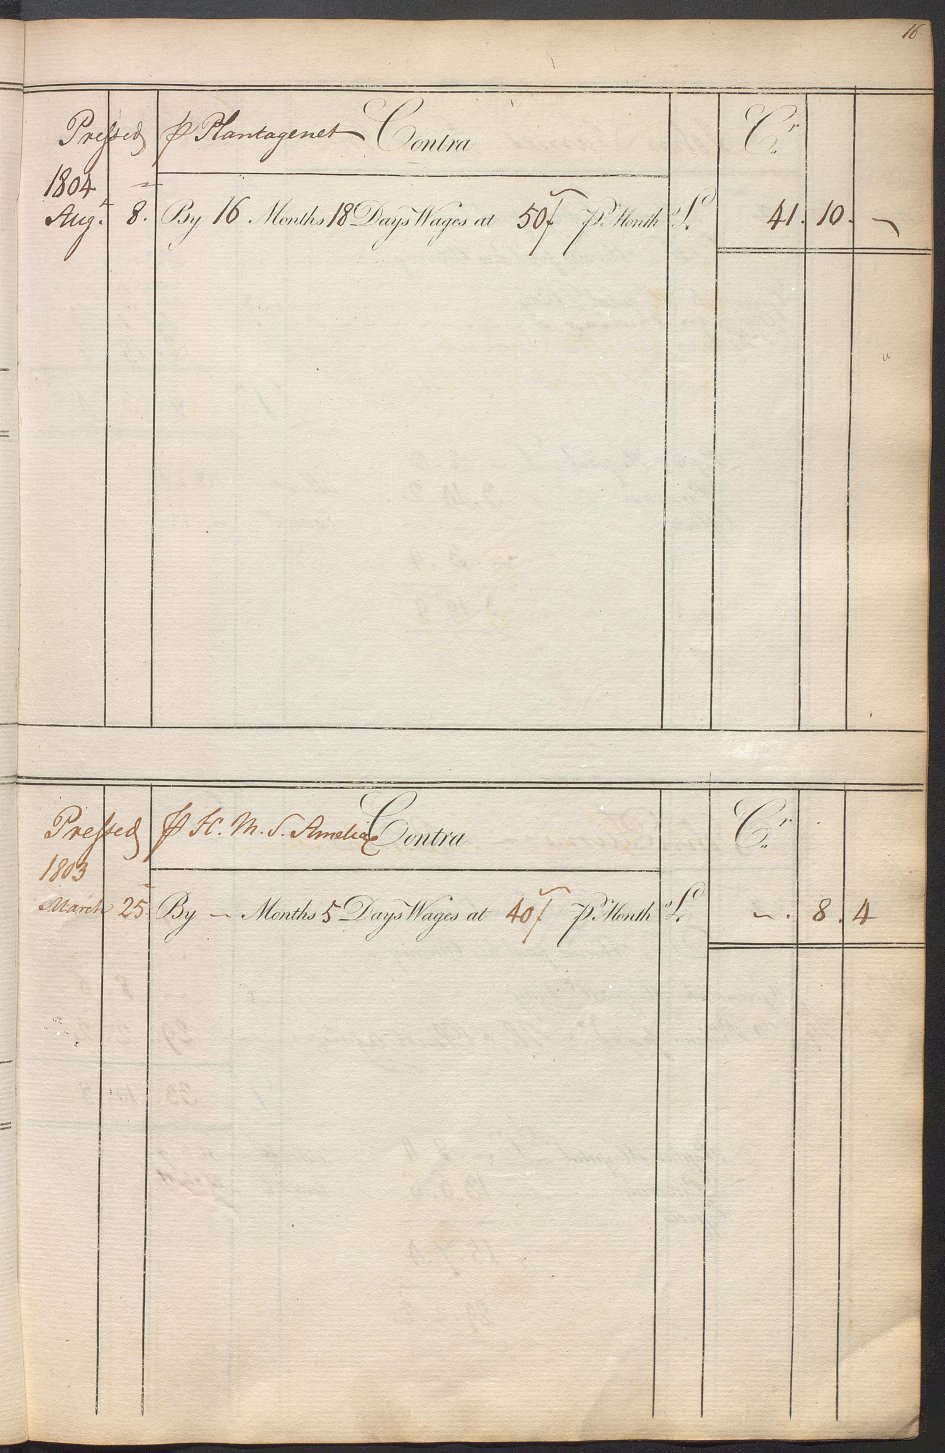 16
Pressed ⅌ Plantagenet Contra Cr.
1804
Augt. 8. By 16 Months 18 Days Wages at 50/ ⅌ Month £d 41. 10. -
Pressed ⅌ H. M. S. Amelia Contra Cr.
1803
March 25 By - Months 5 Days Wages at 40/ ⅌ Month £d - . 8. 4